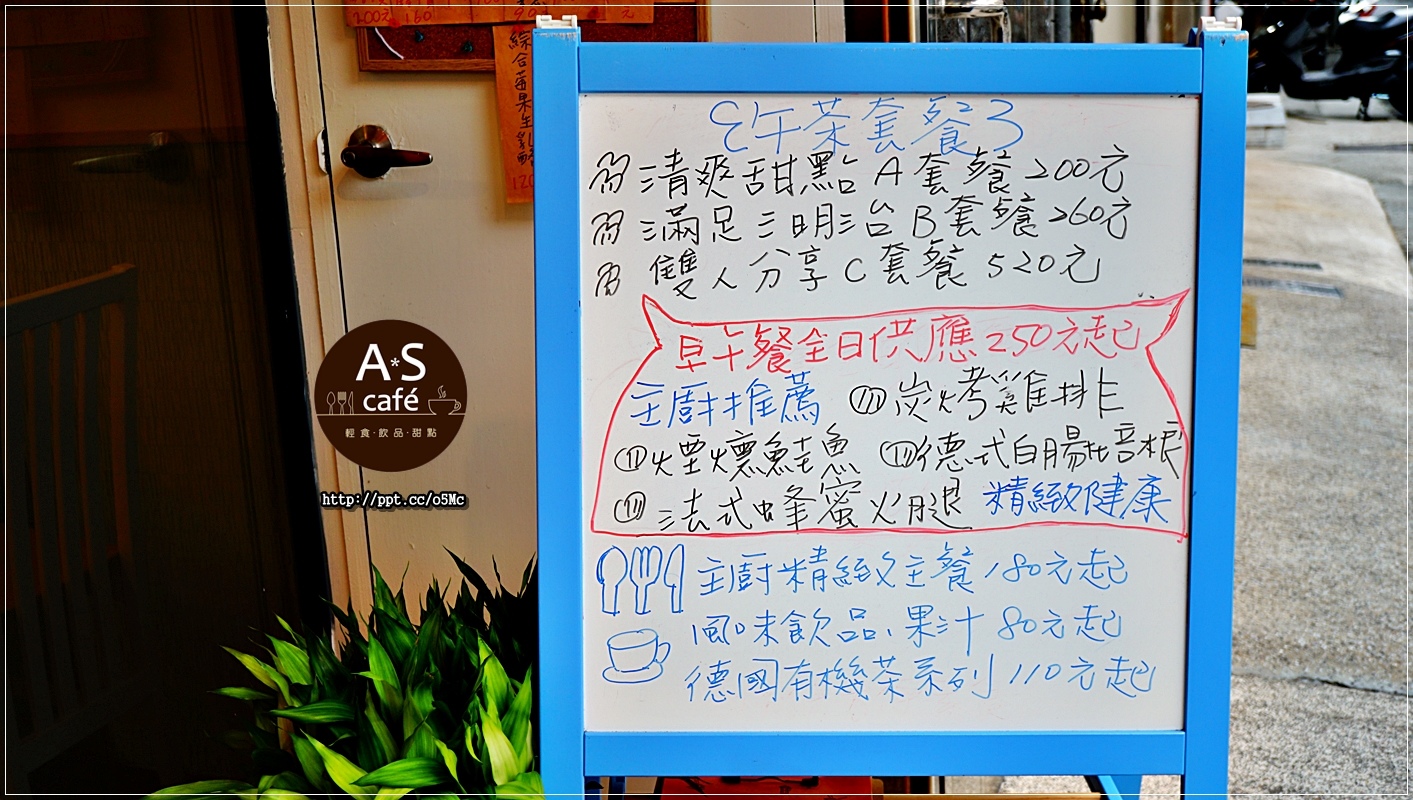 200元 160
元
綜合莓果生乳酪
120
午茶套餐
清爽甜點 A 套餐 200元
滿足三明治 B 套餐 260元
雙人分享 C 套餐 520元
早午餐全日供應 250元起
主廚推薦 炭烤雞排
煙燻鮭魚 德式白腸培根
法式蜂蜜火腿 精緻健康
主廚精緻主餐 180元起
風味飲品、果汁 80元起
德國有機茶系列 110元起
A*S
café
輕食·飲品·甜點
http://ppt.cc/o5Mc